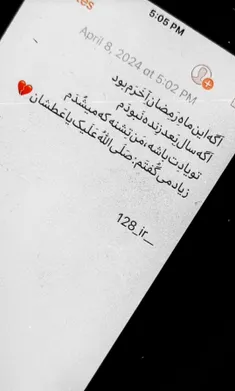 5:05 PM
tes
April 8, 2024 at 5:02 PM
اگه این ماه رمضان آخرم بود
اگه سال بعد زنده نبودم
تو یادت باشه، من تشنه که میشدم
زیاد می گفتم: صَلَّی اللهُ عَلَیکَ یا عَطشان 💔
128_ir__